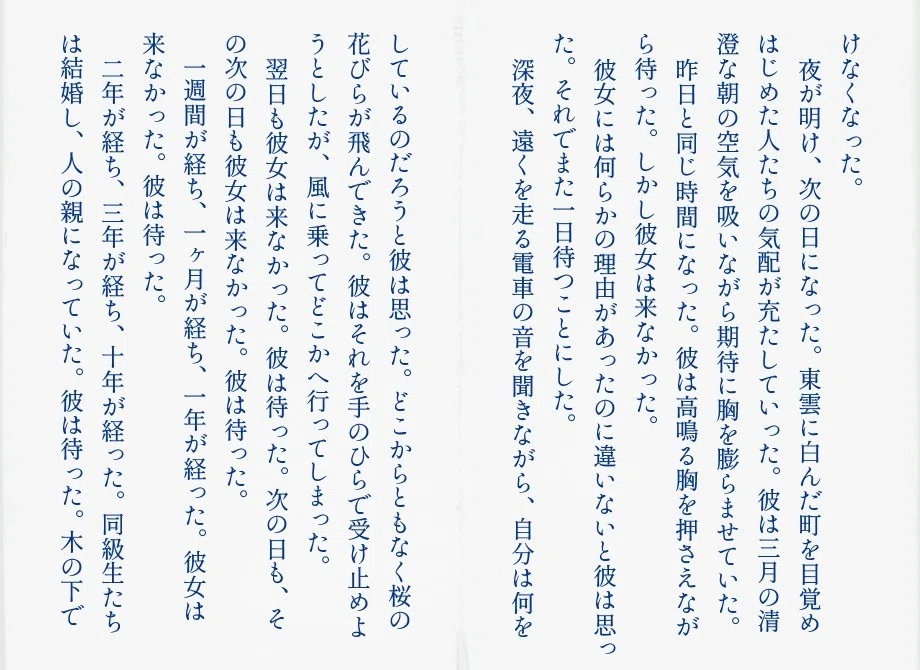 けなくなった。
　夜が明け、次の日になった。東雲に白んだ町を目覚め
はじめた人たちの気配が充たしていった。彼は三月の清
澄な朝の空気を吸いながら期待に胸を膨らませていた。
　昨日と同じ時間になった。彼は高鳴る胸を押さえなが
ら待った。しかし彼女は来なかった。
　彼女には何らかの理由があったのに違いないと彼は思っ
た。それでまた一日待つことにした。
　深夜、遠くを走る電車の音を聞きながら、自分は何を
しているのだろうと彼は思った。どこからともなく桜の
花びらが飛んできた。彼はそれを手のひらで受け止めよ
うとしたが、風に乗ってどこかへ行ってしまった。
　翌日も彼女は来なかった。彼は待った。次の日も、そ
の次の日も彼女は来なかった。彼は待った。
　一週間が経ち、一ヶ月が経ち、一年が経った。彼女は
来なかった。彼は待った。
　二年が経ち、三年が経ち、十年が経った。同級生たち
は結婚し、人の親になっていた。彼は待った。木の下で